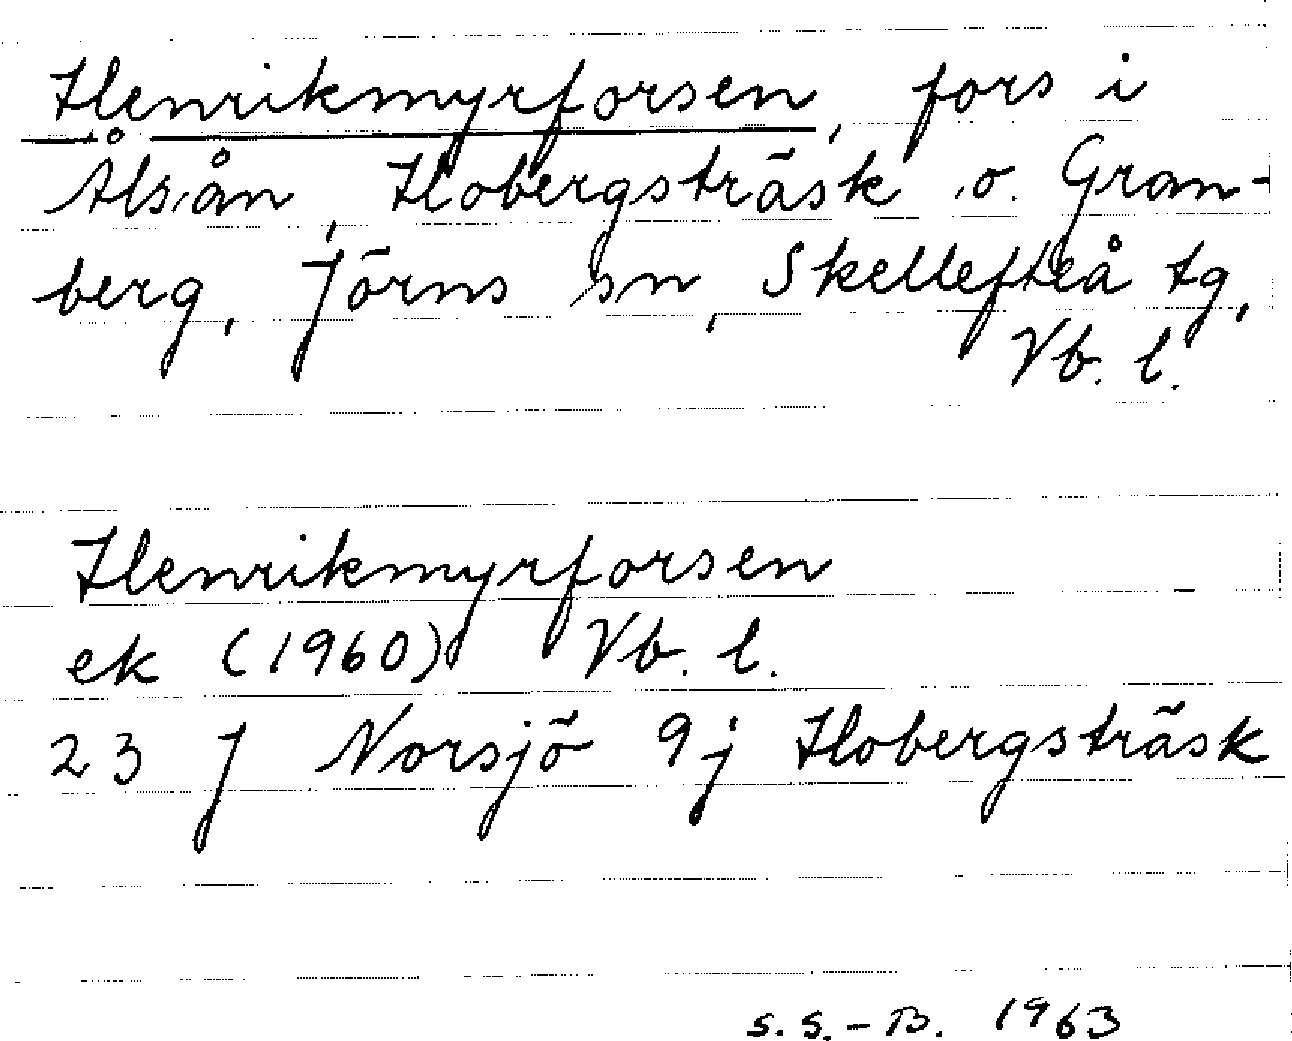 Henrikmyrforsen, fors i
Ålsån, Hobergsträsk o. Gran-
berg, Jörns sn, Skellefteå tg,
Vb. l.
Henrikmyrforsen
ek (1960) Vb. l.
23 J Norsjö 9j Hobergsträsk
S.S.-B. 1963